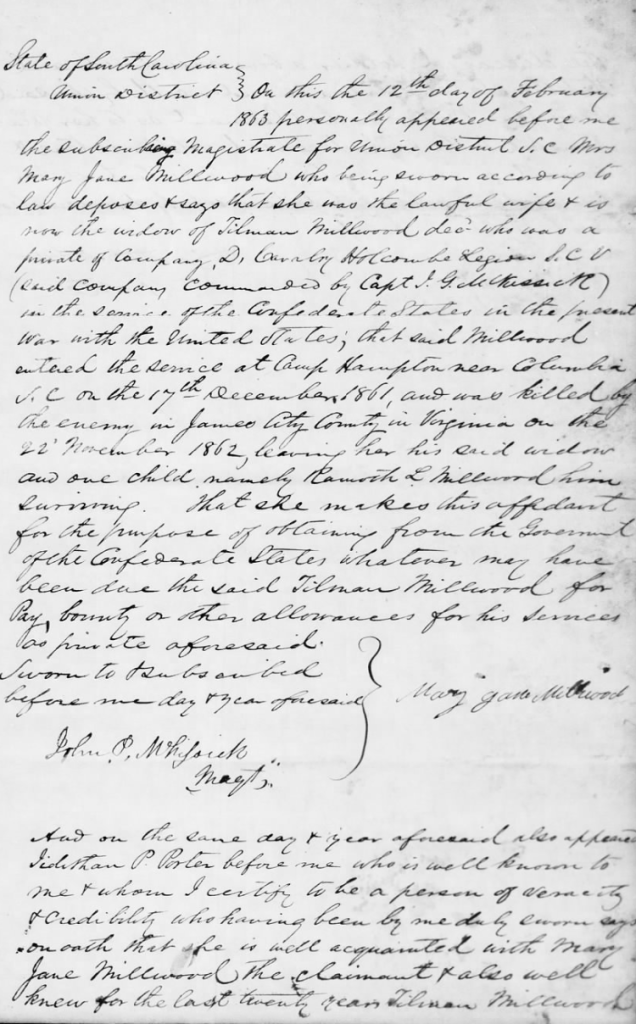 State of South Carolina }
Union District } On this the 12th day of February
1863 personally appeared before me
the subscribing Magistrate for Union District S. C Mrs
Mary Jane Millwood who being sworn according to
law deposes & says that she was the lawful wife & is
now the widow of Tilman Millwood decd who was a
private of Company, D, Cavalry Holcombe Legion S. C V
(said company commanded by Capt J. G. McKissick)
in the service of the Confederate States in the present
War with the United States; that said Millwood
entered the service at Camp Hampton near Columbia
S. C on the 17th December, 1861, and was killed by
the enemy in James City County in Virginia on the
22' November 1862, leaving her his said widow
and one child, namely L Millwood him
surviving. That she makes this affidavit
for the purpose of obtaining from the Government
of the Confederate States whatever may have
been due the said Tilman Millwood for
Pay, bounty or other allowances for his services
as private aforesaid.
Sworn to & subscribed
before me day & year aforesaid } Mary Jane Millwood
John P. McKissick
Magt
And on the same day & year aforesaid also appeared
P. Porter before me who is well known to
me & whom I certify to be a person of veracity
& credibility who having been by me duly sworn says
on oath that he is well acquainted with Mary
Jane Millwood the claimant & also well
knew for the last twenty years Tilman Millwood